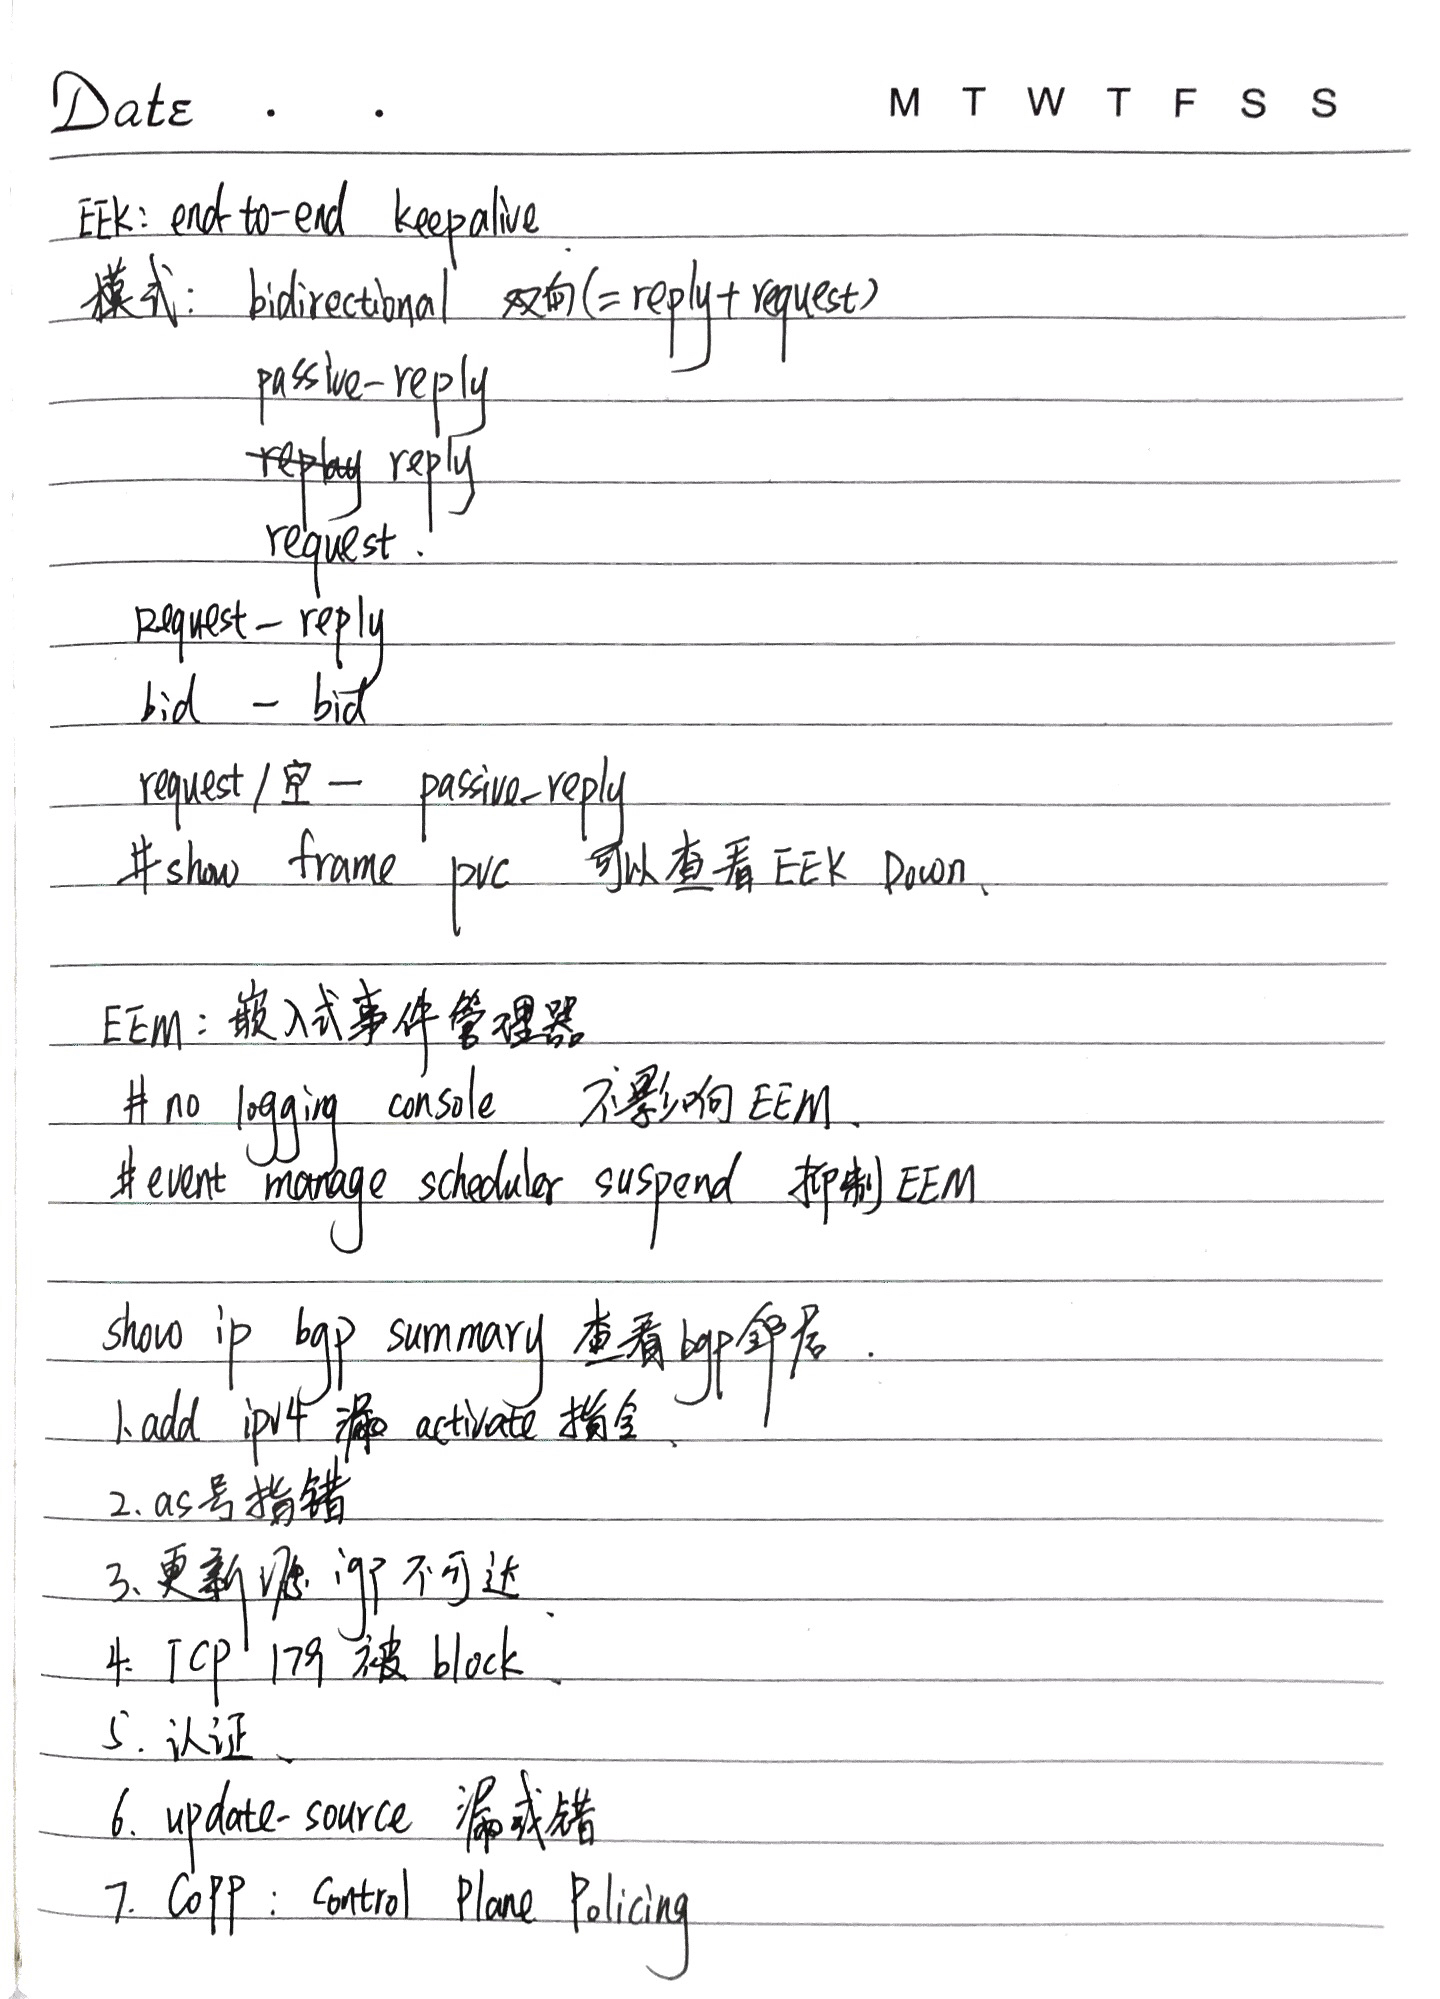 Date . .
M T W T F S S
EEK: end-to-end keepalive
模式: bidirectional 双向(=reply+request)
passive-reply
replay reply
request.
Request- reply
bid - bid
request/空 - passive-reply
#show frame pvc 可以查看EEK Down、
EEM: 嵌入式事件管理器
#no logging console 不影响EEM、
#event manage scheduler suspend 抑制EEM
show ip bgp summary 查看bgp邻居.
1、add ipv4 漏 activate 指令、
2、as号指错
3、更新源 igp不可达、
4. TCP 179 被 block、
5. 认证、
6. update-source 漏或错
7. CoPP: Control Plane Policing